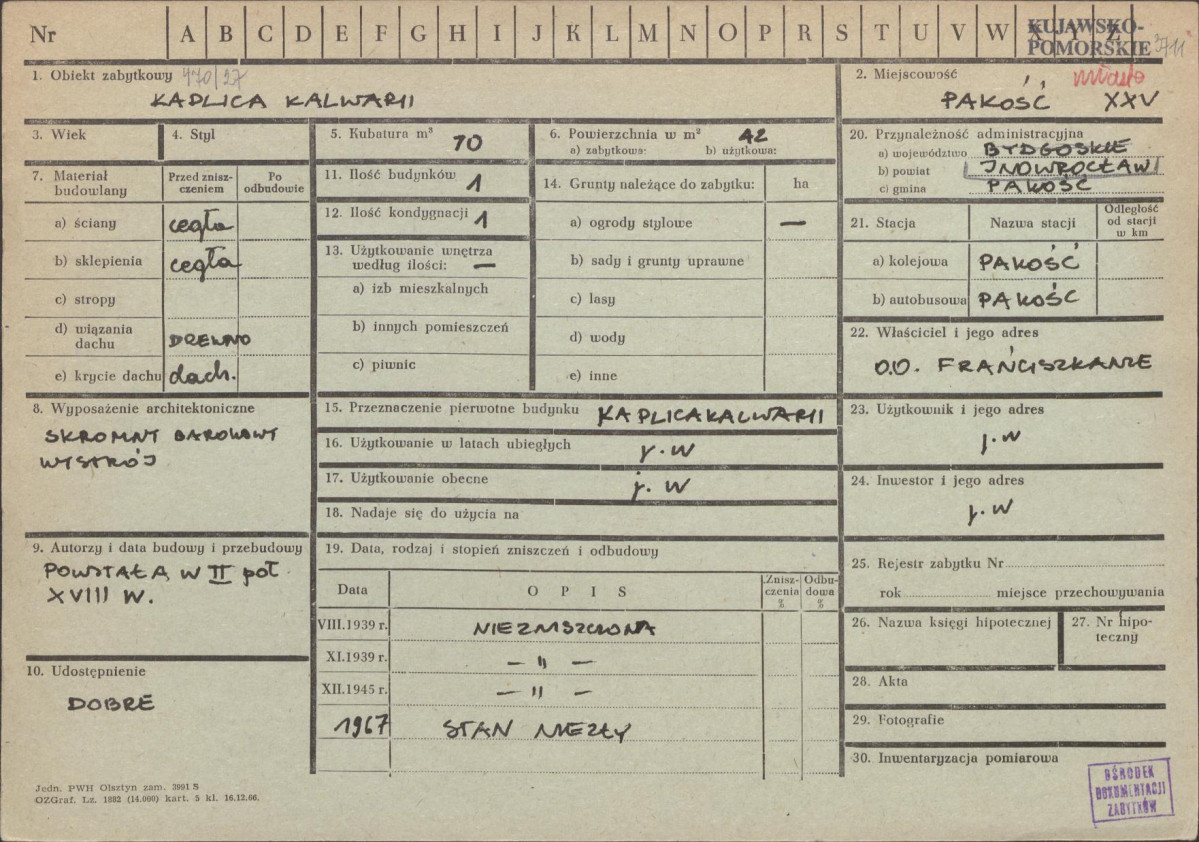 Nr A B C D E F G H I J K L M N O P R S T U V W X Y Z
KUJAWSKO-
POMORSKIE 3711
1. Obiekt zabytkowy 470/27
KAPLICA KALWARII
2. Miejscowość miasto
PAKOŚĆ XXV
3. Wiek
4. Styl
5. Kubatura m³ 70
6. Powierzchnia w m² 42
a) zabytkowa: b) użytkowa:
7. Materiał budowlany
Przed znisz-
czeniem
Po
odbudowie
a) ściany cegła
b) sklepienia cegła
c) stropy
d) wiązania
dachu DREWNO
e) krycie dachu dach.
8. Wyposażenie architektoniczne
SKROMNY BAROKOWY
WYSTRÓJ
9. Autorzy i data budowy i przebudowy
POWSTAŁA W II poł.
XVIII W.
10. Udostępnienie
DOBRE
Jedn. PWH Olsztyn zam. 3991 S
OZGraf. Lz. 1882 (14.000) kart. 5 kl. 16.12.66.
11. Ilość budynków 1
12. Ilość kondygnacji 1
13. Użytkowanie wnętrza
według ilości: —
a) izb mieszkalnych
b) innych pomieszczeń
c) piwnic
14. Grunty należące do zabytku: ha
a) ogrody stylowe —
b) sady i grunty uprawne
c) lasy
d) wody
e) inne
15. Przeznaczenie pierwotne budynku KAPLICA KALWARII
16. Użytkowanie w latach ubiegłych j.w
17. Użytkowanie obecne j.w
18. Nadaje się do użycia na
19. Data, rodzaj i stopień zniszczeń i odbudowy
Data
O P I S
Znisz-
czenia
%
Odbu-
dowa
%
VIII.1939 r. NIEZNISZCZONA
XI.1939 r. — " —
XII.1945 r. — " —
1967 STAN NIEZŁY
20. Przynależność administracyjna
a) województwo BYDGOSKIE
b) powiat INOWROCŁAW
c) gmina PAKOŚĆ
21. Stacja
Nazwa stacji
Odległość
od stacji
w km
a) kolejowa PAKOŚĆ
b) autobusowa PAKOŚĆ
22. Właściciel i jego adres
O.O. FRANCISZKANIE
23. Użytkownik i jego adres
j.w
24. Inwestor i jego adres
j.w
25. Rejestr zabytku Nr
rok miejsce przechowywania
26. Nazwa księgi hipotecznej
27. Nr hipo-
teczny
28. Akta
29. Fotografie
30. Inwentaryzacja pomiarowa
OŚRODEK
DOKUMENTACJI
ZABYTKÓW